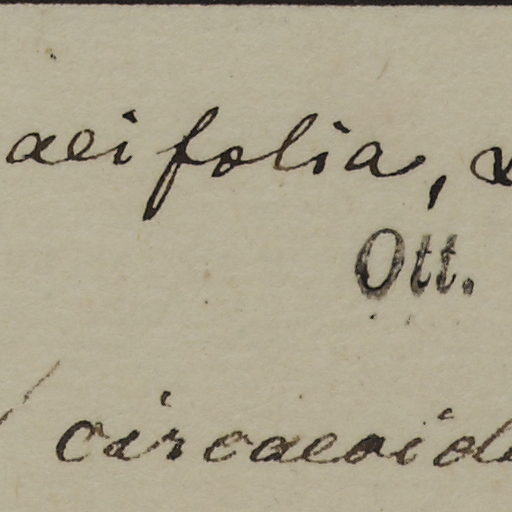 aeifolia,
Ott.
circaeoid